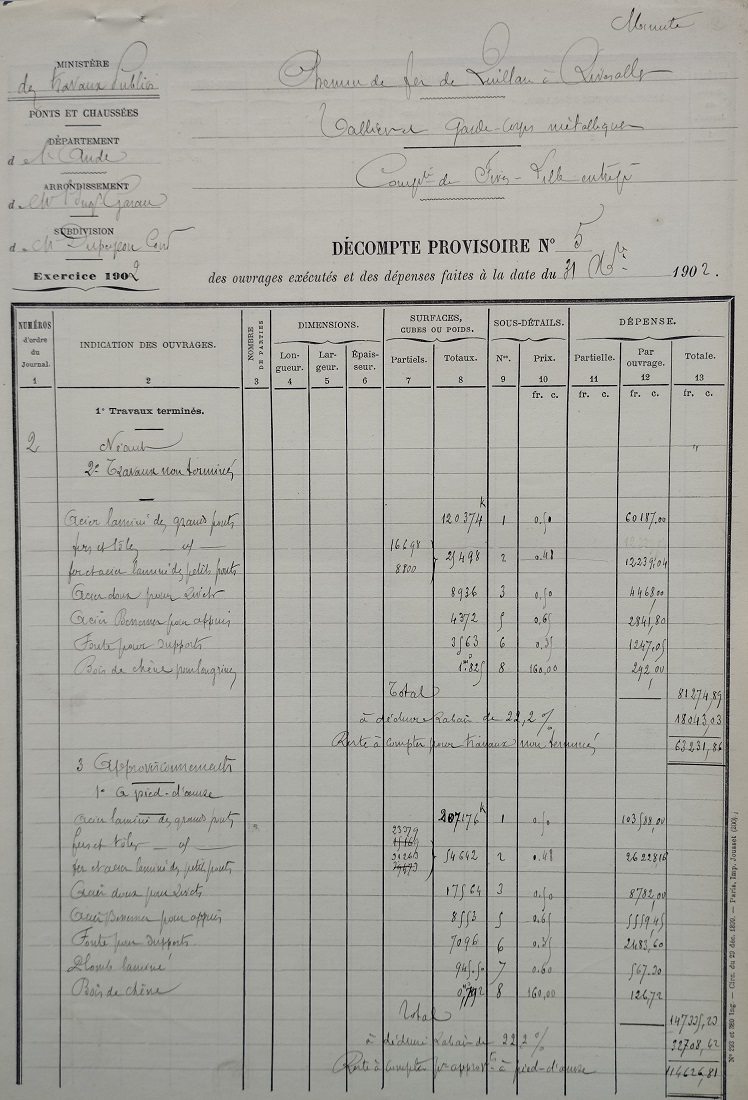 Minute
MINISTÈRE
des travaux Publics
PONTS ET CHAUSSÉES
DÉPARTEMENT
d l'Aude
ARRONDISSEMENT
d
SUBDIVISION
d
Exercice 1902
Chemin de fer de Quillan à Rivesaltes
Tabliers et Garde-Corps métalliques
Compte de Fives-Lille entrep
DÉCOMPTE PROVISOIRE N° 5
des ouvrages exécutés et des dépenses faites à la date du 31 Xbre 1902.
NUMÉROS d'ordre du Journal. INDICATION DES OUVRAGES. NOMBRE DE PARTIES DIMENSIONS. SURFACES, CUBES OU POIDS. SOUS-DÉTAILS. DÉPENSE.
Longueur. Largeur. Épaisseur. Partiels. Totaux. Nos. Prix. Partielle. Par ouvrage. Totale.
1 2 3 4 5 6 7 8 9 10 11 12 13
fr. c. fr. c. fr. c.
1° Travaux terminés.
2 Néant "
2° Travaux non terminés
Acier laminé des grands ponts 120374k 1 0.50 60187.00
fers et tôles — d° — 16698
fer et acier laminé des petits ponts 8800 25498 2 0.48 12239.04
Acier doux pour rivets 8936 3 0.50 4468.00
Acier Bessemer pour appuis 4372 5 0.65 2841.80
Fonte pour supports 3563 6 0.35 1247.05
Bois de chêne pour longrines 1.825 8 160,00 292,00
Total 81274,89
à déduire Rabais de 22,2 % 18043,03
Reste à compter pour travaux non terminés 63231,86
3 Approvisionnements
1° à pied-d'œuvre
Acier laminé des grands ponts 207176k 1 0.50 103588,00
fers et tôles — d° — 23379
fer et acier laminé des petits ponts 31263 54642 2 0.48 26228 16
Acier doux pour rivets 17564 3 0.50 8782,00
Acier Bessemer pour appuis 8553 5 0.65 5559.45
Fonte pour supports 7096 6 0.35 2483,60
Plomb laminé 945.50 7 0.60 567.30
Bois de chêne 0,792 8 160,00 126,72
Total 147335,23
à déduire Rabais de 22,2 % 32708,42
Reste à compter pr approvts à pied-d'œuvre 114626,81
N° 293 et 380 Ing. — Circ. du 29 déc. 1899. — Paris, Imp. Jousset (200)